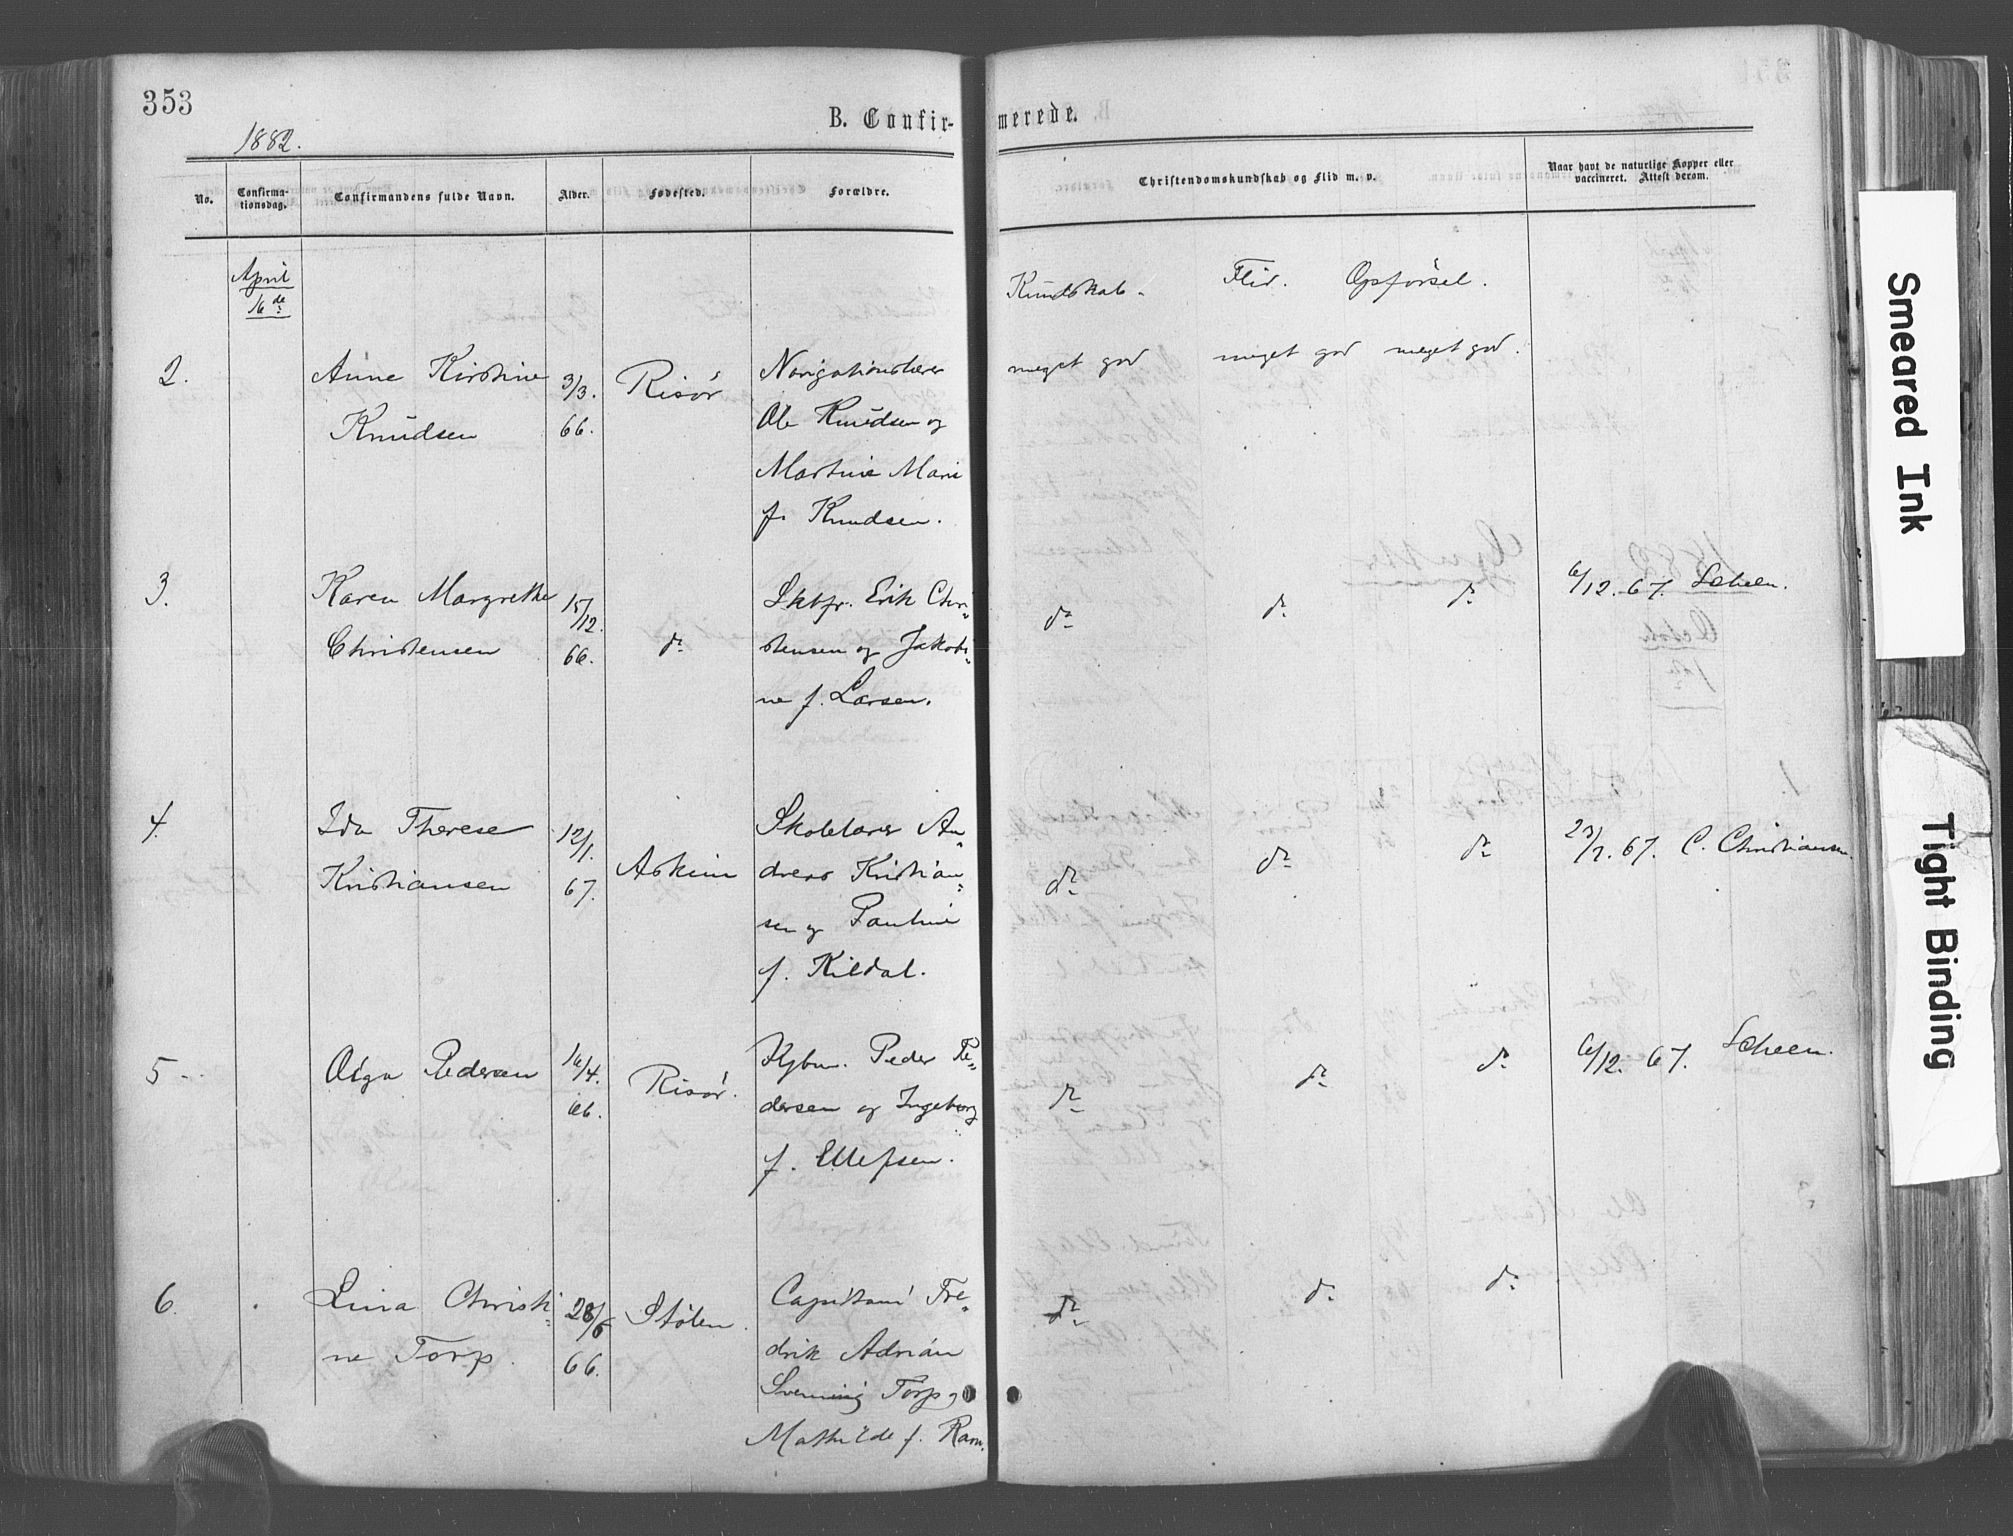 353
B. Confirmerede.
1882.
No.
Confirmationsdag.
Confirmandens fulde Navn.
Alder.
Fødested.
Forældre.
Christendomskundskab og Flid m. v.
Naar havt de naturlige Kopper eller vaccineret. Attest derom.
April
16de
Kundskab.
Flid.
Opførsel.
2.
Anne Kirstine
Knudsen
3/3.
66.
Risør
Navigationslærer
Ole Knudsen og
Martine Marie
f. Knudsen.
meget god
meget god
meget god.
3.
Karen Margrethe
Christensen
15/12.
66.
do
Skbfr. Erik Chri„
stensen og Jakobi„
ne f. Larsen.
do
do
do
6/12. 67. Scheen.
4.
Ida Therese
Kristiansen
12/1.
67.
Askim
Skolelærer An„
dreas Kristian„
sen og Pauline
f. Kildal.
do
do
do
23/7. 67. C. Christiansen.
5
Olga Pedersen
16/4.
66.
Risør.
Kjbm. Peder Pe„
dersen og Ingeborg
f. Ellefsen.
do
do
do
6/12. 67. Scheen.
6.
Lina Christi„
ne Torp.
28/6
66.
Stølen
Capitain Fre„
drik Adrian
Svenning Torp og
Mathilde f. Ram.
do
do
do
Smeared Ink
Tight Binding